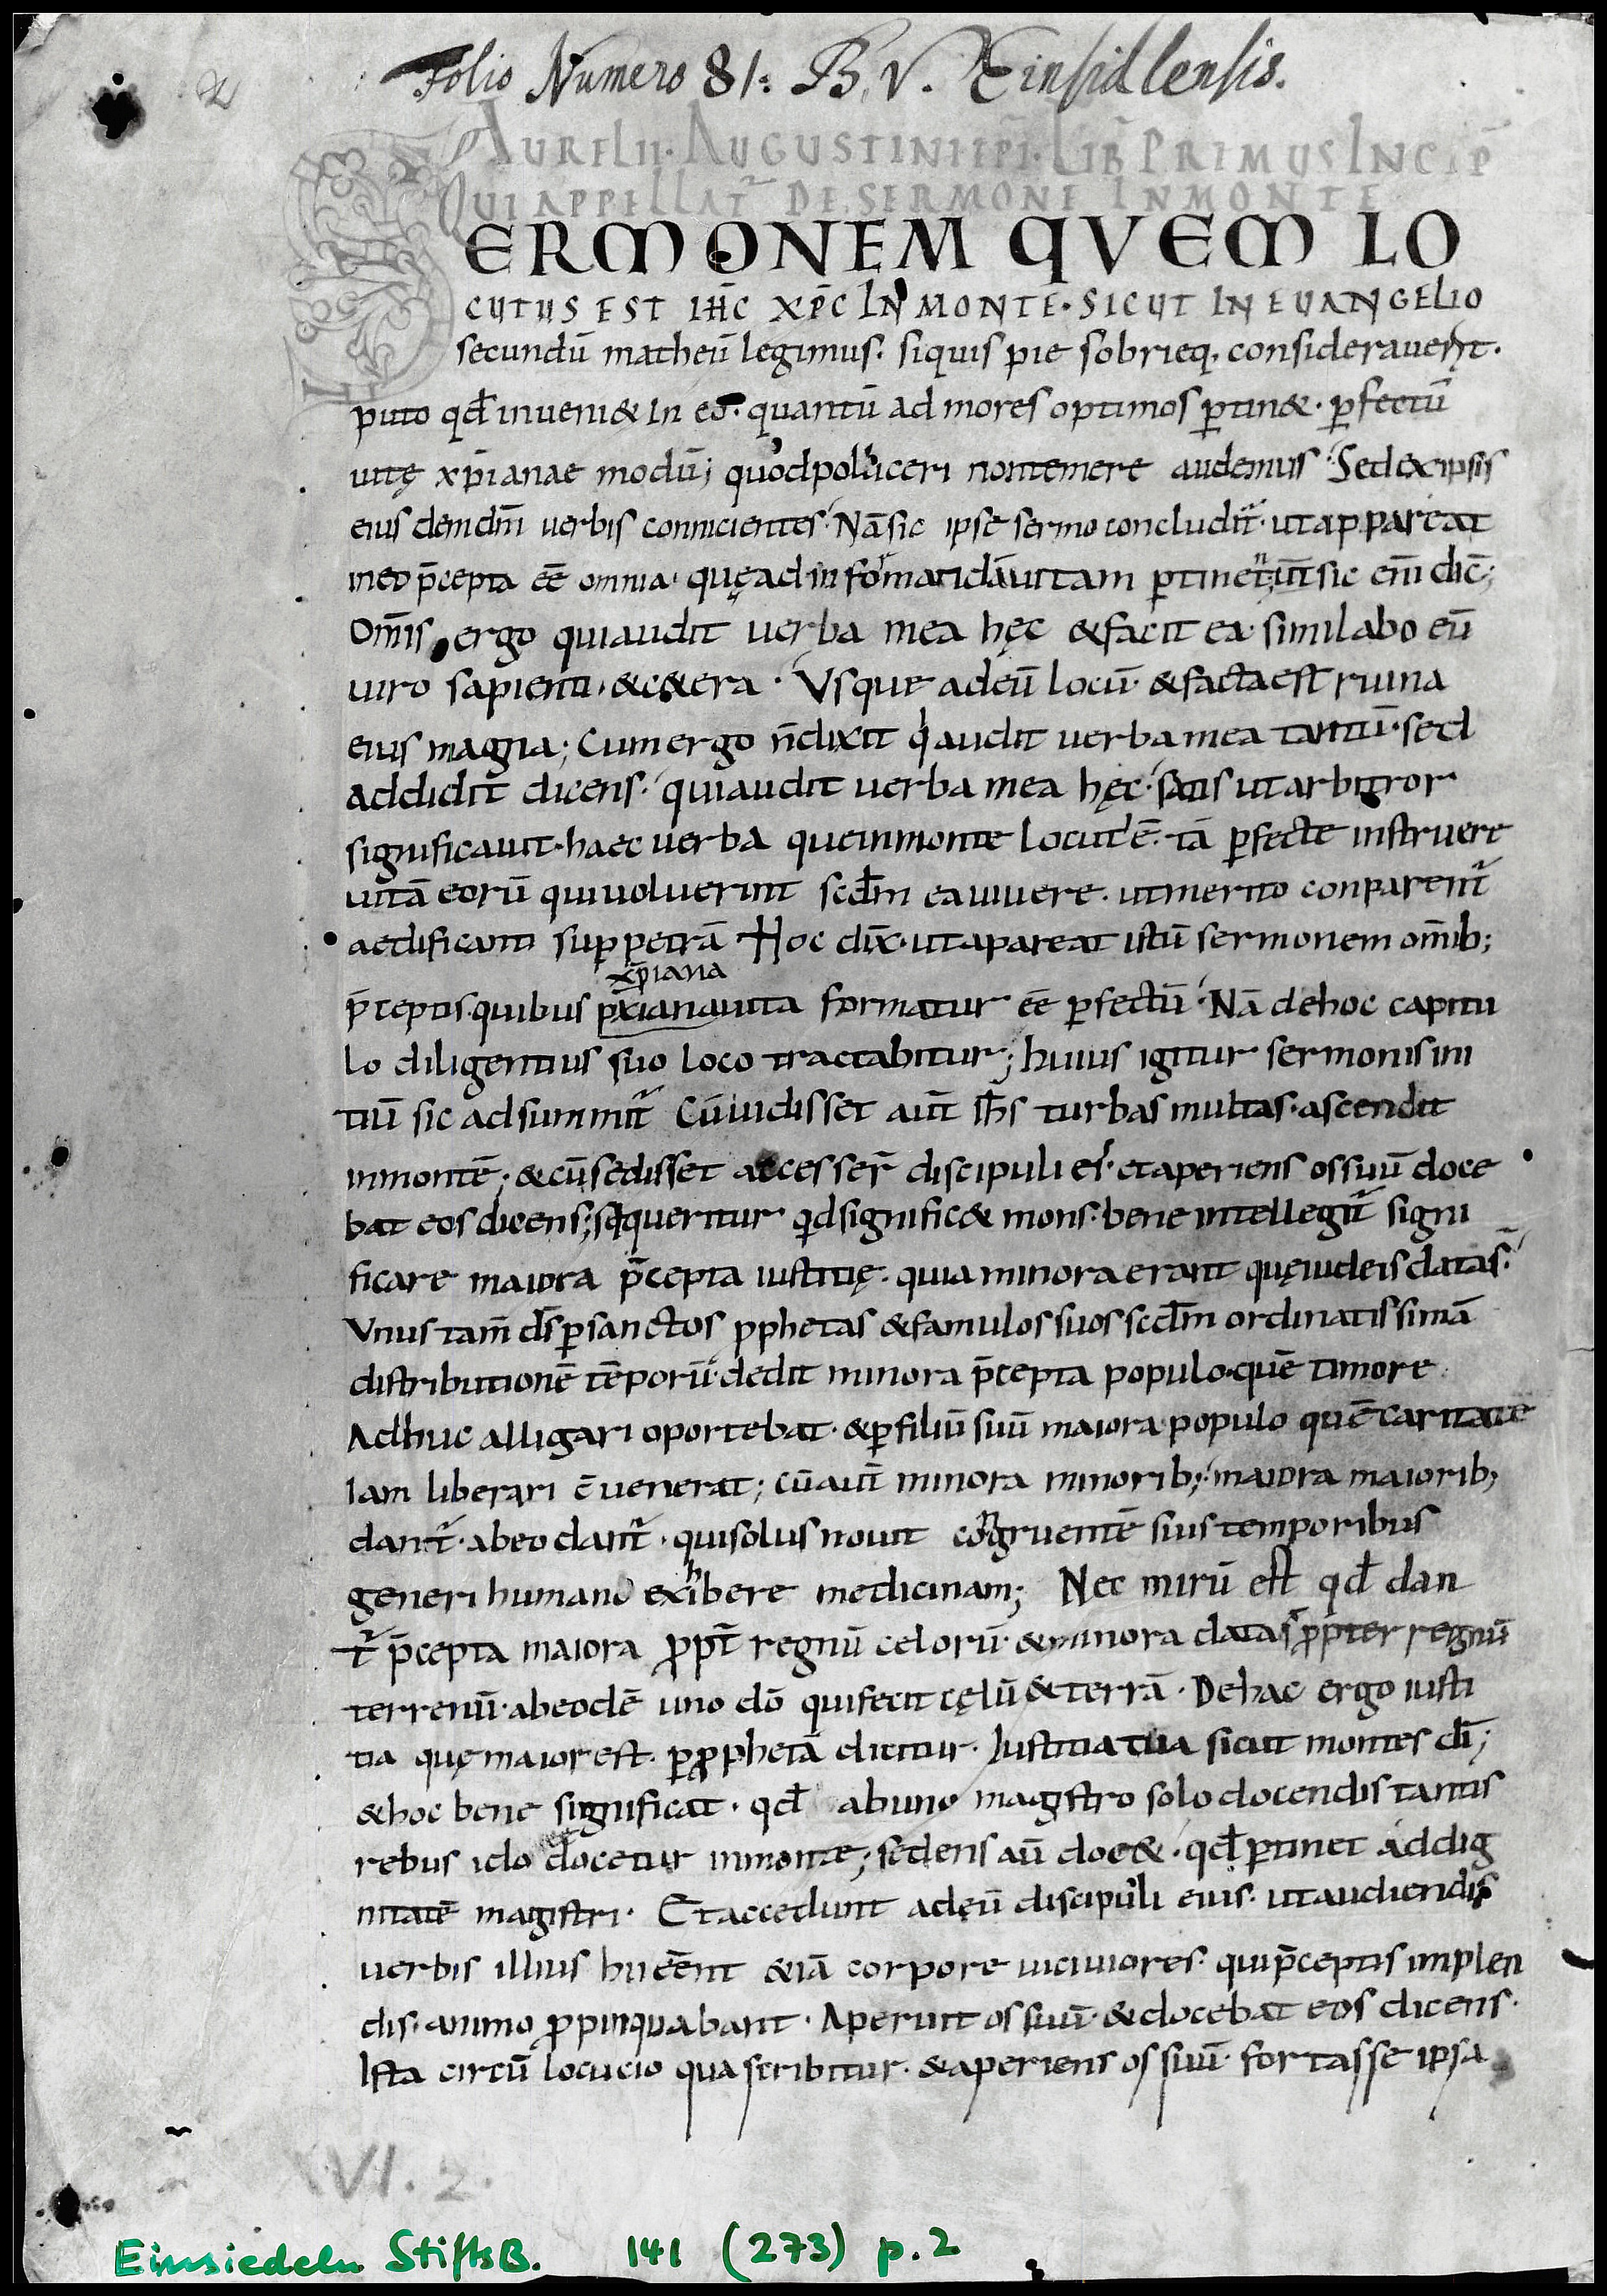 Folio Numero 81. B. V. Einsidlensis.
AURELII · AUGUSTINI EPĪ · LIB̄ PRIMUS INCIP̄
QUI APPELLAT᷑ DE SERMONE IN MONTE
SERMONEM QVEM LO
CUTUS EST IHC̄ XPC̄ IN MONTE · SICUT IN EUANGELIO
secundū matheū legimus · siquis pie sobrieq, considerauerit ·
puto qđ inueni& in eo · quantū ad mores optimos ꝑtin& · ꝑfectū
uitę xp̄ianae modū; quod polliceri non temere audemus · Sed ex ipsis
eiusdem dn̄i uerbis connicientes · Nā sic ipse sermo concludit᷑ · ut appareat
in eo p̄cepta eē omnia · quę ad informandā uitam ꝑtinent · sic enī dic̄;
Om̄is ergo qui audit uerba mea hęc & facit ea · similabo eū
uiro sapienti · & c&era · Vsque ad eū locū · & facta est ruina
eius magna; Cum ergo n̄ dixit qui audit uerba mea tantū · sed
addidit dicens · qui audit uerba mea hęc · satis ut arbitror
significauit · haec uerba que in monte locut' ē · tā ꝑfecte instruere
uitā eorū qui uoluerint scđm ea uiuere · ut merito conparent᷑
aedificanti sup petrā Hoc dix̄ · ut apareat istū sermonem om̄ib;
xp̄iana
p̄ceptis · quibus pxiana uita formatur eē ꝑfectū · Nā de hoc capitu
lo diligentius suo loco tractabitur; huius igitur sermonis ini
tiū sic adsummit᷑ Cū uidisset aut̄ ih̄s turbas multas · ascendit
in montē; & cū sedisset accesser̄ discipuli ei' · et aperiens os suū doce
bat eos dicens; si queritur qid signific& mons · bene intellegit᷑ signi
ficare maiora p̄cepta iustitię · quia minora erant quę iudeis data s̄ ·
Vnus tam̄ ds̄ ꝑ sanctos pphetas & famulos suos scđm ordinatissimā
distributionē tēporū · dedit minora p̄cepta populo · quē timore
Adhuc alligari oportebat · & ꝑ filiū suū maiora populo quē caritate
Iam liberari c̄uenerat; cū aut̄ minora minorib; · maiora maiorib;
dant᷑ · ab eo dant᷑ · qui solus nouit congruentē suis temporibus
generi humano exhibere medicinam; Nec mirū est qđ dan
t᷑ p̄cepta maiora ꝓpt̄ regnū celorū · & minora data s̄ ꝓpter regnū
terrenū · ab eodē uno dō qui fecit cęlū & terrā · De hac ergo iusti
tia quę maior est · ꝑ ꝓphetā dicitur · Iustitia tua sicut montes dī;
& hoc bene significat · qđ ab uno magistro solo docendis tantis
rebus ido docetur in monte; sedens aū doc& · qđ ꝑtinet ad dig
nitatē magistri · Et accedunt ad eū discipuli eius · ut audiendis
uerbis illius hi eēnt &iā corpore uiciniores · qui p̄ceptis implen
dis · animo ꝓpinquabant · Aperuit os suū · & docebat eos dicens ·
Ista circū locucio qua scribitur · & aperiens os suū · fortasse ipsa
VI. 2.
Einsiedeln StiftsB. 141 (273) p. 2